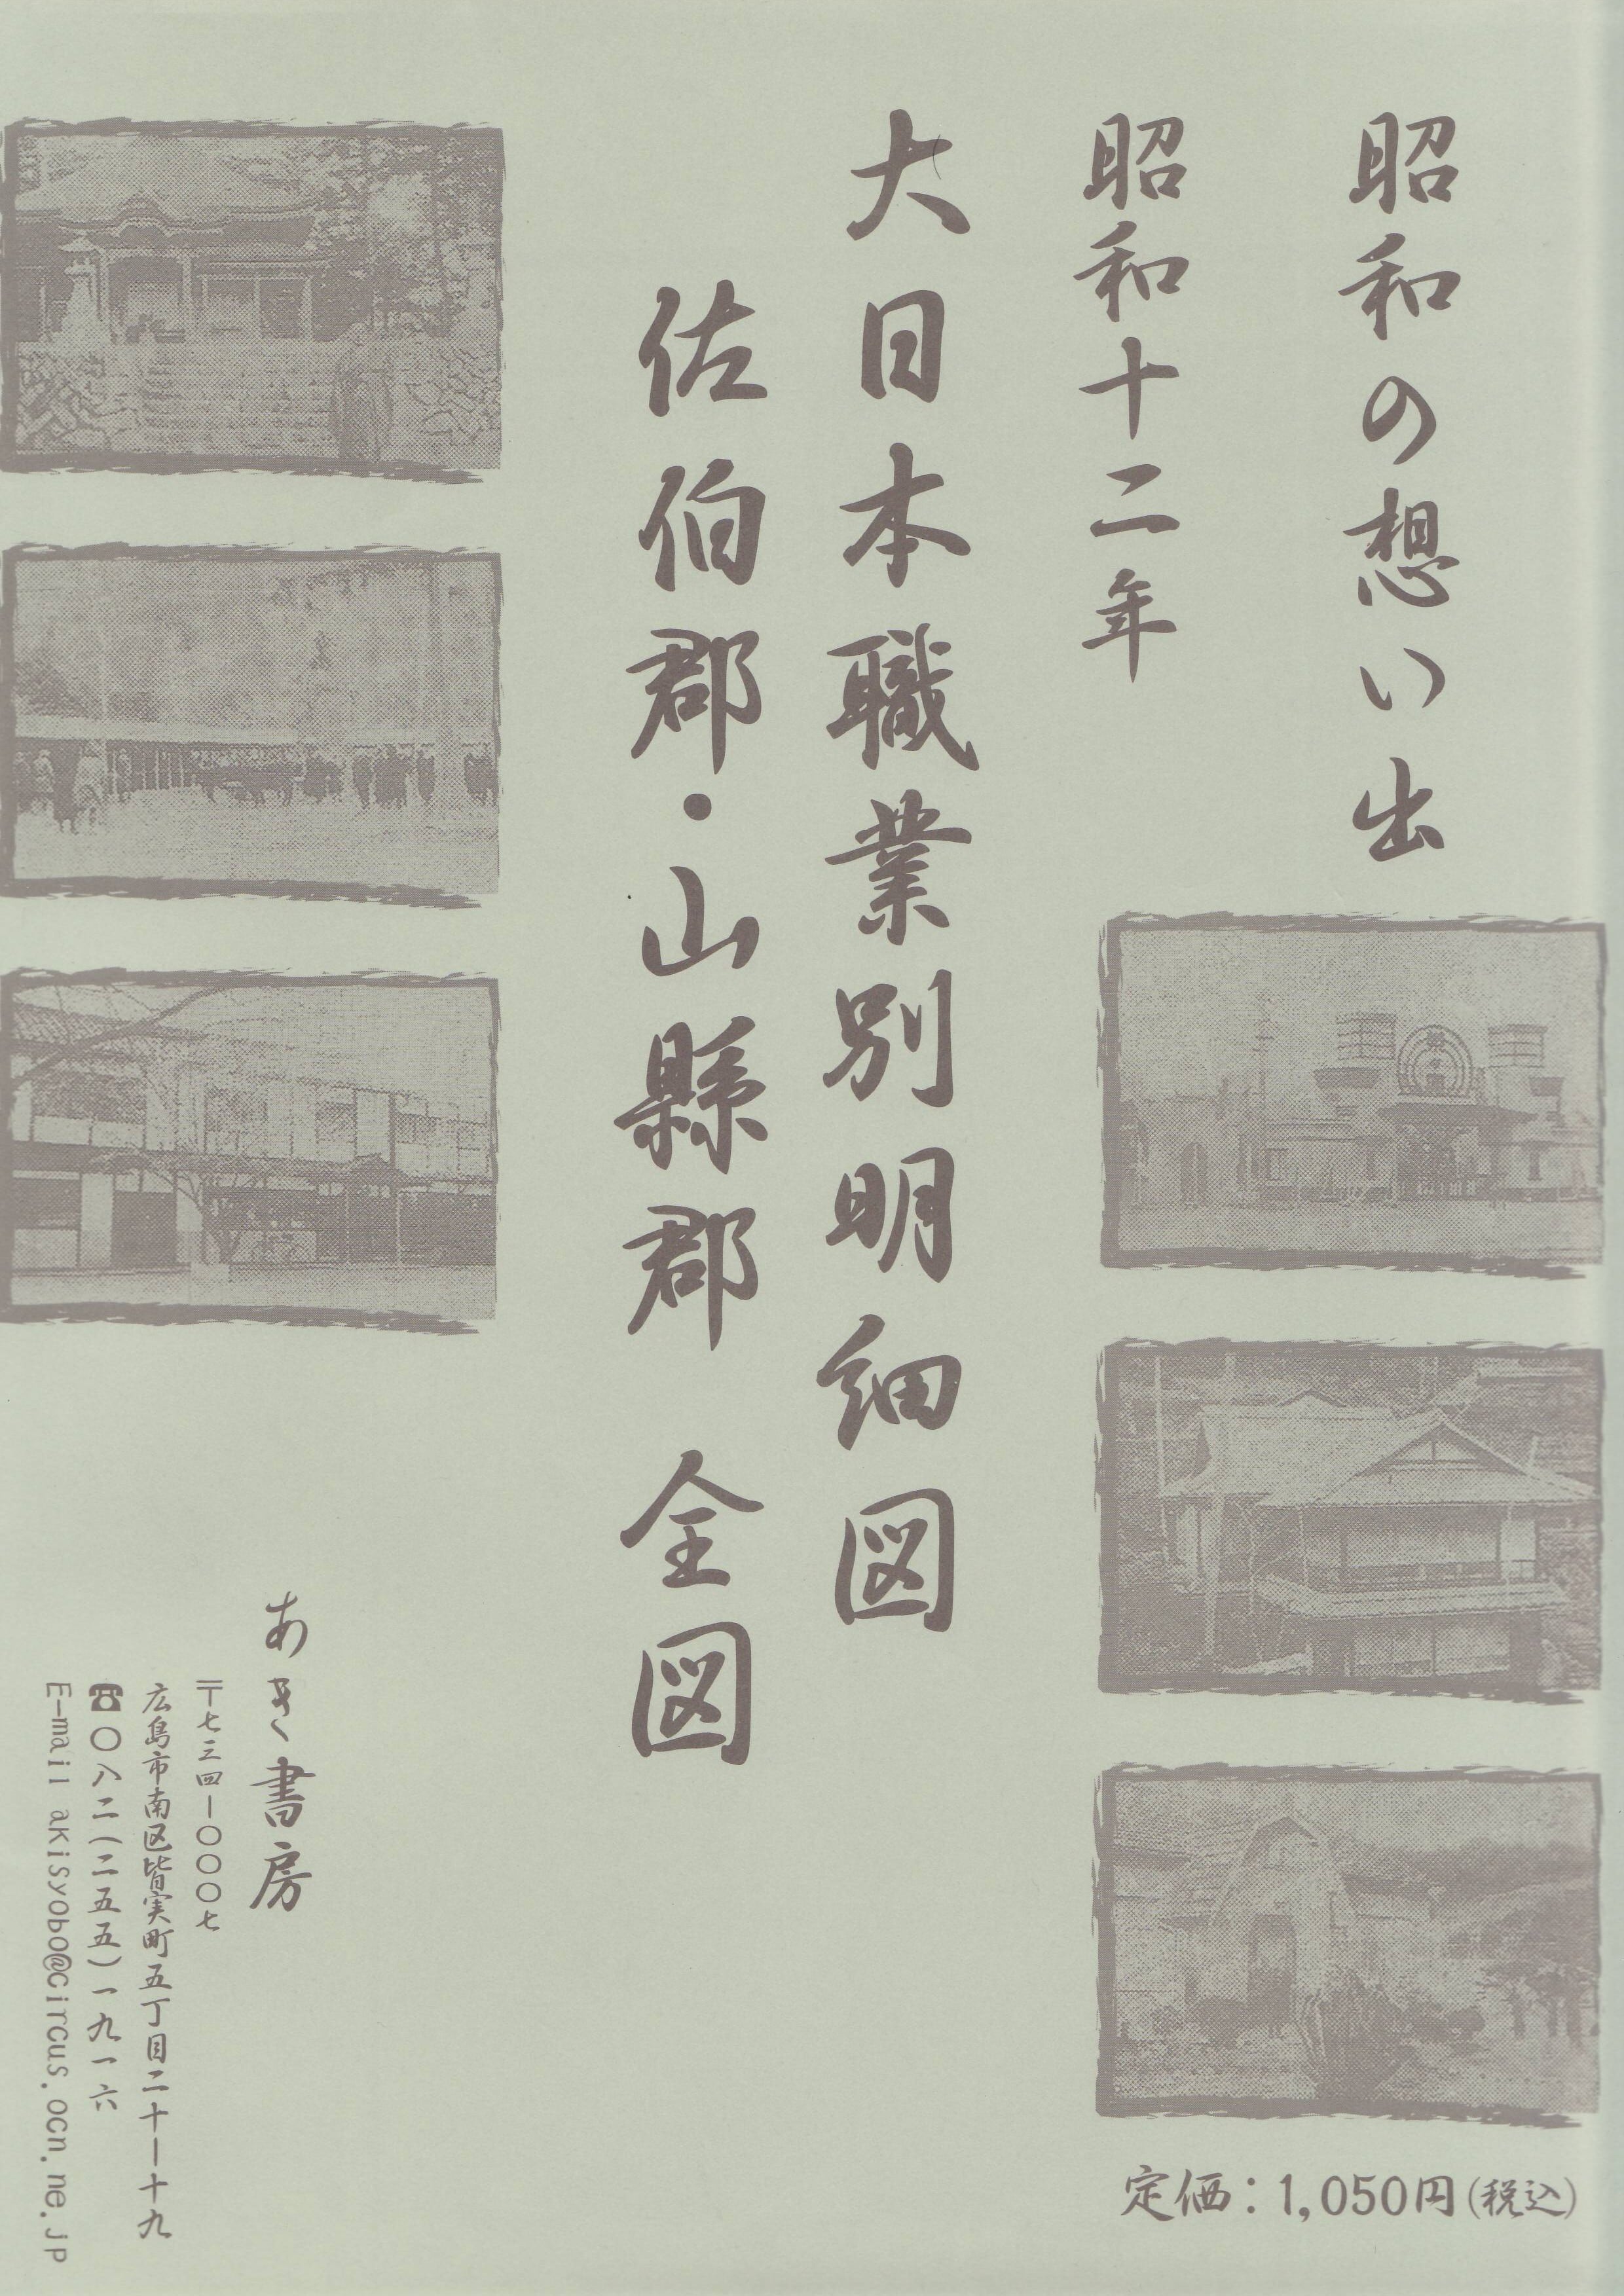 昭和の想い出
昭和十二年
大日本職業別明細図
佐伯郡・山縣郡　全図
あき書房
〒七三四－〇〇〇七
広島市南区皆実町五丁目二十－十九
☎〇八二(二五五)一九一六
E-mail akisyobo@circus.ocn.ne.jp
定価：1,050円(税込)